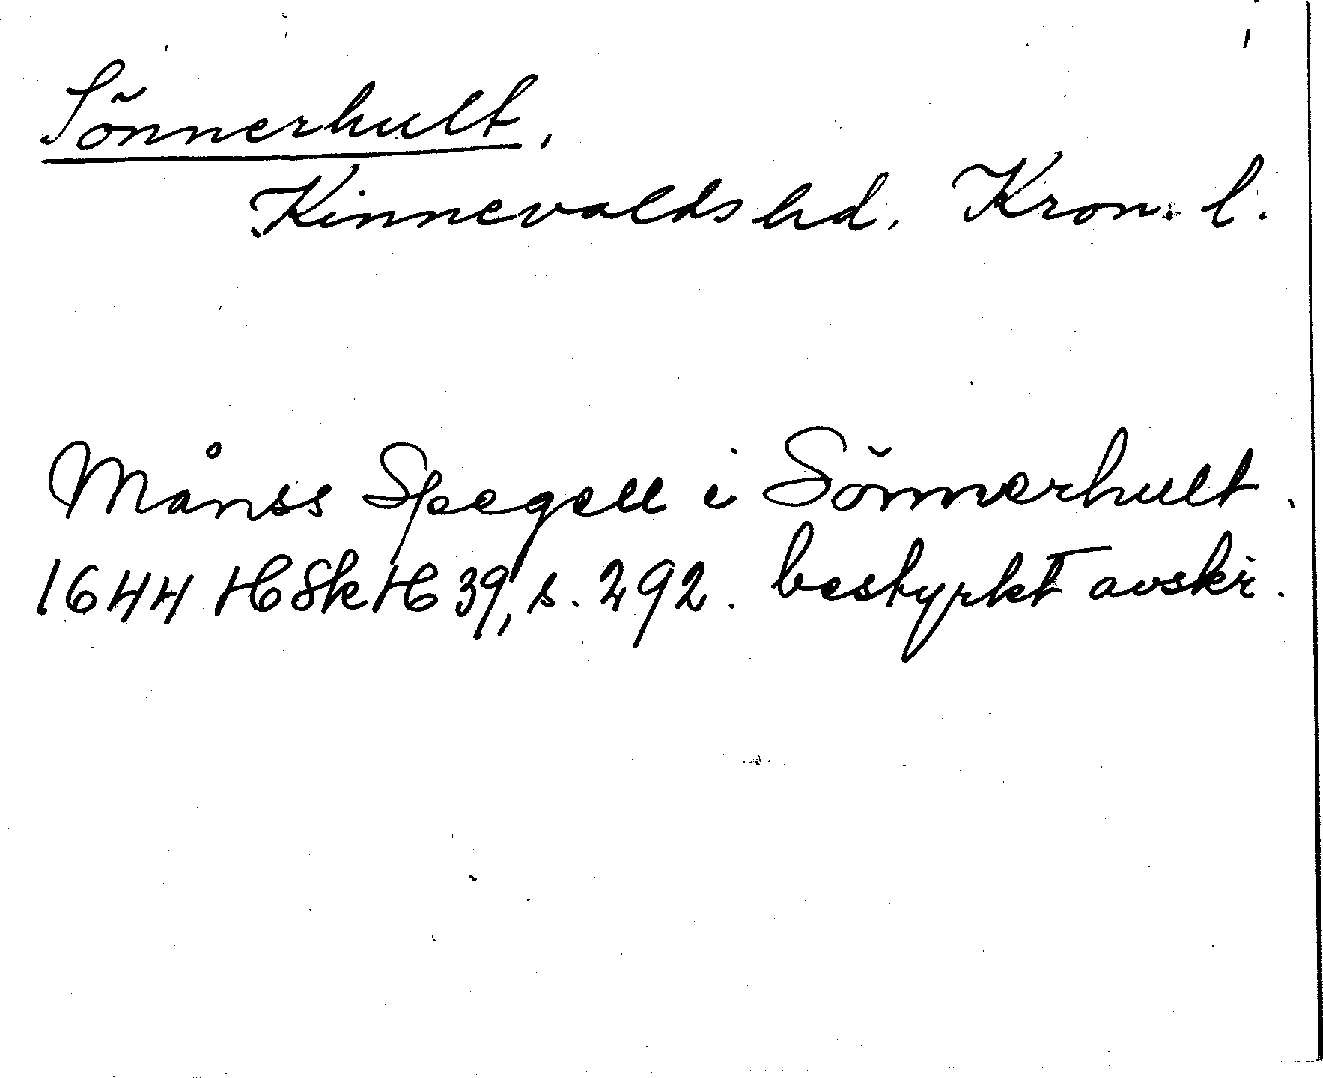 Sönnerhult,
Kinnevalds hd. Kron. l.
Månss Spegell i Sönnerhult.
1644 HSkH 39, s. 292. bestyrkt avskr.